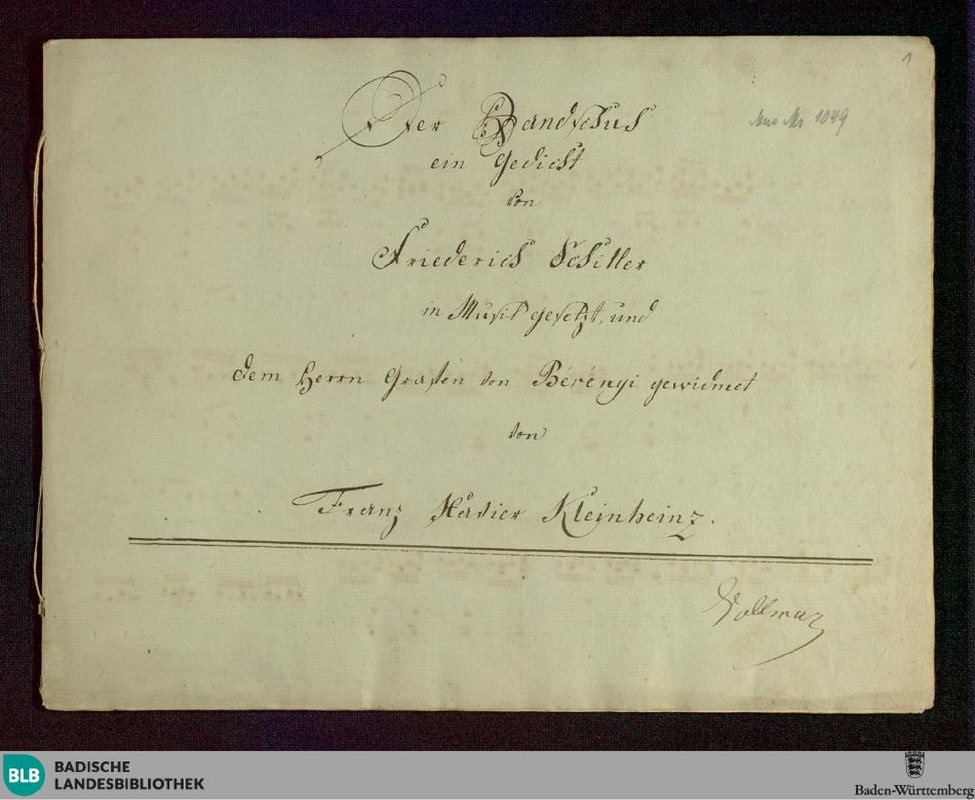 1
Der Handschuh
Mus. Hs. 1049
ein Gedicht
von
Friederich Schiller
in Musik gesetzt, und
dem Herrn Grafen von Bérényi gewidmet
von
Franz Xavier Kleinheinz.
Vollmar
BLB
BADISCHE
LANDESBIBLIOTHEK
Baden-Württemberg